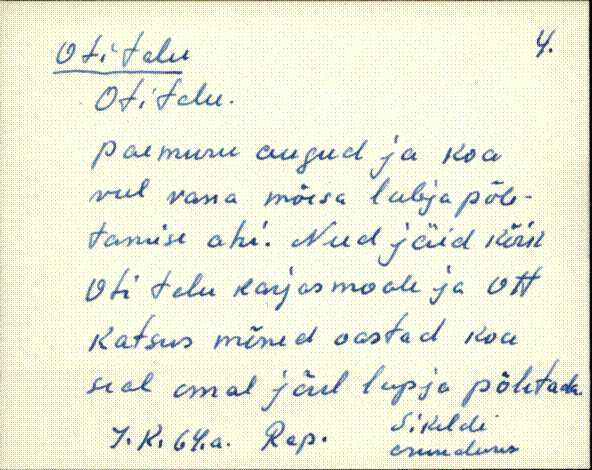 4.
Oti talu
Oti talu.
paemuru augud ja koa
veel vana mõisa lubjapõle-
tamise ahi. Nued jäid kõik
Oti talu karjasmoale ja Ott
katsus mõned oastad koa
sial omal jõul lupja põletada.
J.K. 64.a. Rap. Sikeldi
asundus